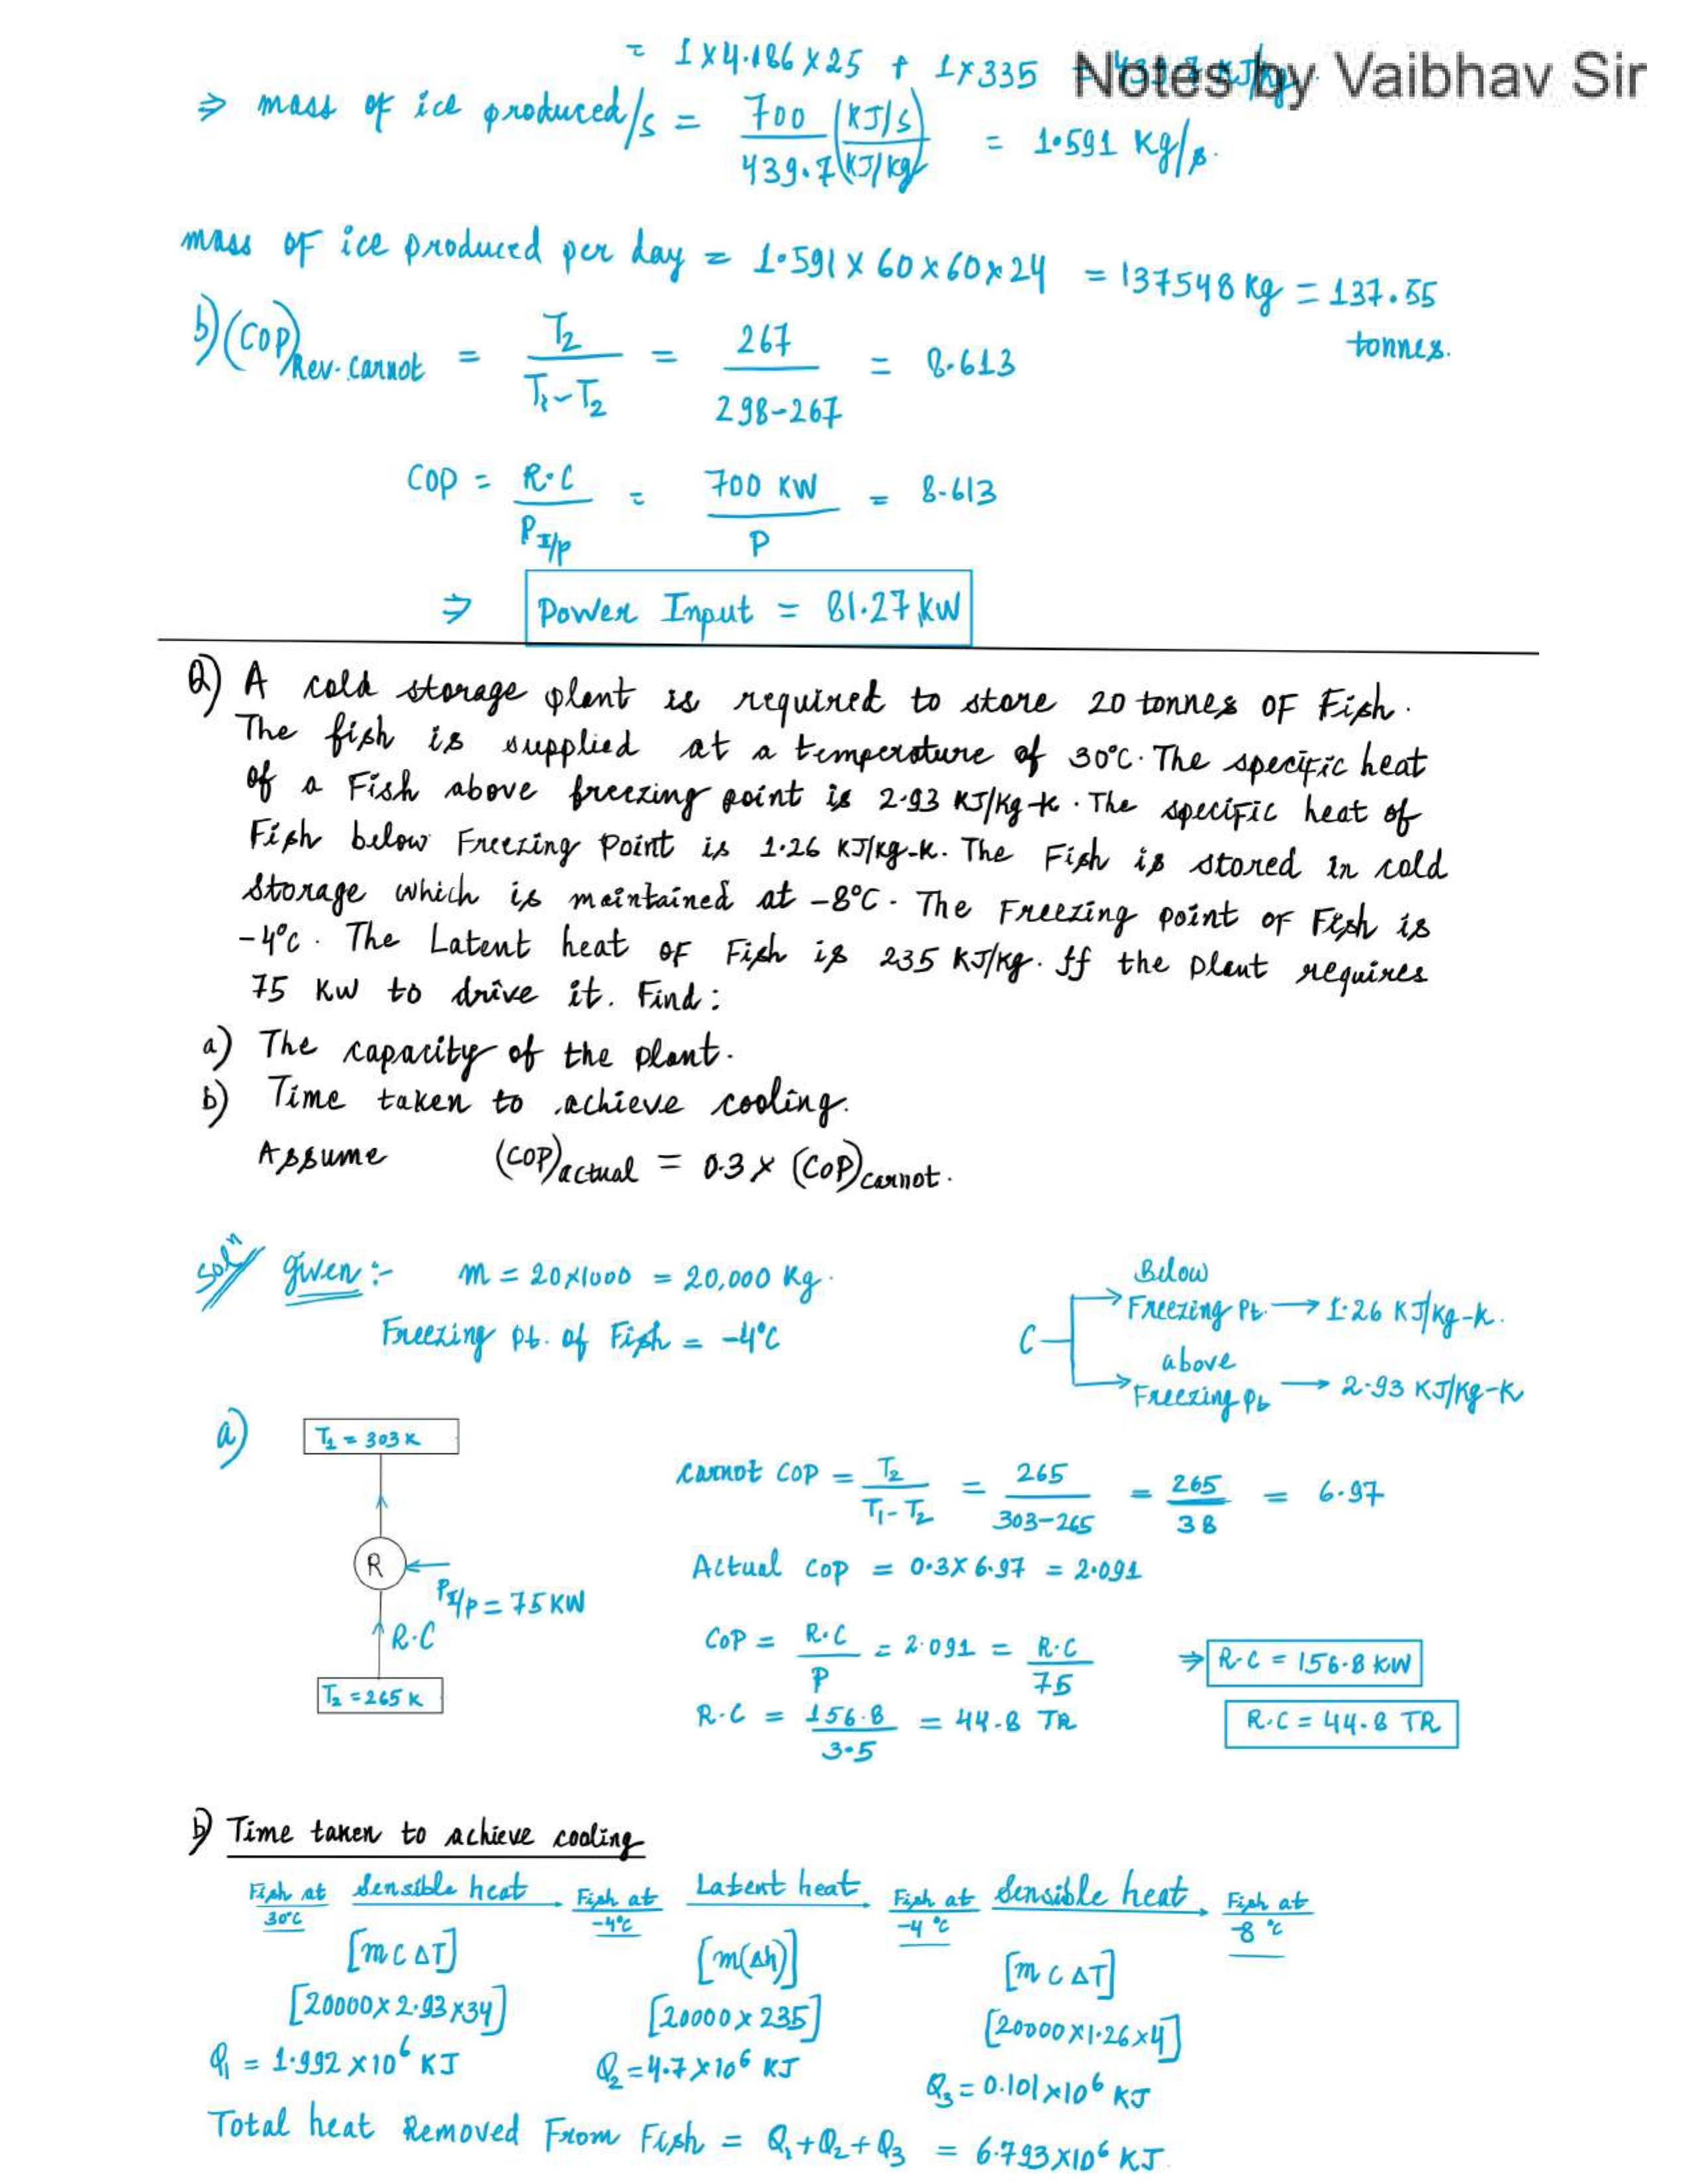 = 1×4.186×25 + 1×335
Notes by Vaibhav Sir
⇒ mass of ice produced/s = 700 (KJ/s) / 439.7 (KJ/kg) = 1.591 Kg/s.
mass of ice produced per day = 1.591 × 60×60×24 = 137548 Kg = 137.55 tonnes.
b) (COP)Rev. carnot = T2 / T1-T2 = 267 / 298-267 = 8.613
COP = R.C / P I/p = 700 KW / P = 8.613
⇒ Power Input = 81.27 kW
Q) A cold storage plant is required to store 20 tonnes of Fish.
The fish is supplied at a temperature of 30°C. The specific heat
of a Fish above freezing point is 2.93 KJ/Kg-K. The specific heat of
Fish below Freezing Point is 1.26 KJ/Kg-K. The Fish is stored in cold
storage which is maintained at -8°C. The Freezing point of Fish is
-4°C. The Latent heat of Fish is 235 KJ/Kg. If the plant requires
75 KW to drive it. Find :
a) The capacity of the plant.
b) Time taken to achieve cooling.
Assume (COP)actual = 0.3 × (COP)carnot.
Solⁿ given :- m = 20×1000 = 20,000 Kg.
Freezing pt. of Fish = -4°C
C
Below Freezing Pt. → 1.26 KJ/Kg-K.
above Freezing Pt → 2.93 KJ/Kg-K
a)
T1 = 303 K
R
P I/P = 75 KW
R.C
T2 = 265 K
carnot COP = T2 / T1-T2 = 265 / 303-265 = 265 / 38 = 6.97
Actual COP = 0.3×6.97 = 2.091
COP = R.C / P = 2.091 = R.C / 75 ⇒ R.C = 156.8 KW
R.C = 156.8 / 3.5 = 44.8 TR
R.C = 44.8 TR
b) Time taken to achieve cooling
Fish at 30°C Sensible heat → Fish at -4°C Latent heat → Fish at -4°C Sensible heat → Fish at -8°C
[m C ΔT] [m(Δh)] [m C ΔT]
[20000×2.93×34] [20000×235] [20000×1.26×4]
Q1 = 1.992×10⁶ KJ Q2 = 4.7×10⁶ KJ Q3 = 0.101×10⁶ KJ
Total heat Removed From Fish = Q1+Q2+Q3 = 6.793×10⁶ KJ.